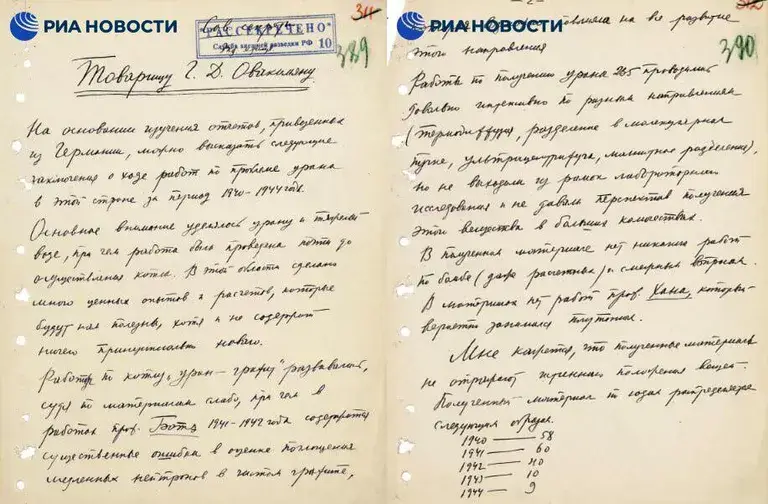 РИА НОВОСТИ
Сов. секретно
РАССЕКРЕЧЕНО
Служба внешней разведки РФ
10
34
389
Товарищу Г. Д. Овакимяну.
На основании изучения отчетов, привезенных
из Германии, можно высказать следующие
заключения о ходе работ по проблеме урана
в этой стране за период 1940-1944 года.
Основное внимание уделялось урану и тяжелой
воде, при чем работа была проведена почти до
осуществления котла. В этой области сделано
много ценных опытов и расчетов, которые
будут нам полезны, хотя и не содержат
ничего принципиально нового.
Работы по котлу „уран-графит" развивались,
судя по материалам слабо, при чем в
работах проф.Ботэ 1941-1942 года содержатся
существенные ошибки в оценке поглощения
медленных нейтронов в чистом графите,
РИА НОВОСТИ
2
390
на все развитие
этого направления
Работы по получению урана 235 проводились
довольно интенсивно по разным направлениям
(термодиффузия, разделение в молекулярном
пучке, ультрацентрифуга, магнитное разделение),
но не выходили из рамок лабораторных
исследований и не давали перспектив получения
этого вещества в больших количествах.
В полученном материале нет никаких работ
по бомбе (даже расчетных) и смежных вопросах.
В материалах нет работ проф. Хана, который
вероятно занимался плутонием.
Мне кажется, что полученные материалы
не отражают истинного положения вещей.
Полученный материал по годам распределяется
следующим образом
1940 — 58
1941 — 60
1942 — 40
1943 — 10
1944 — 9